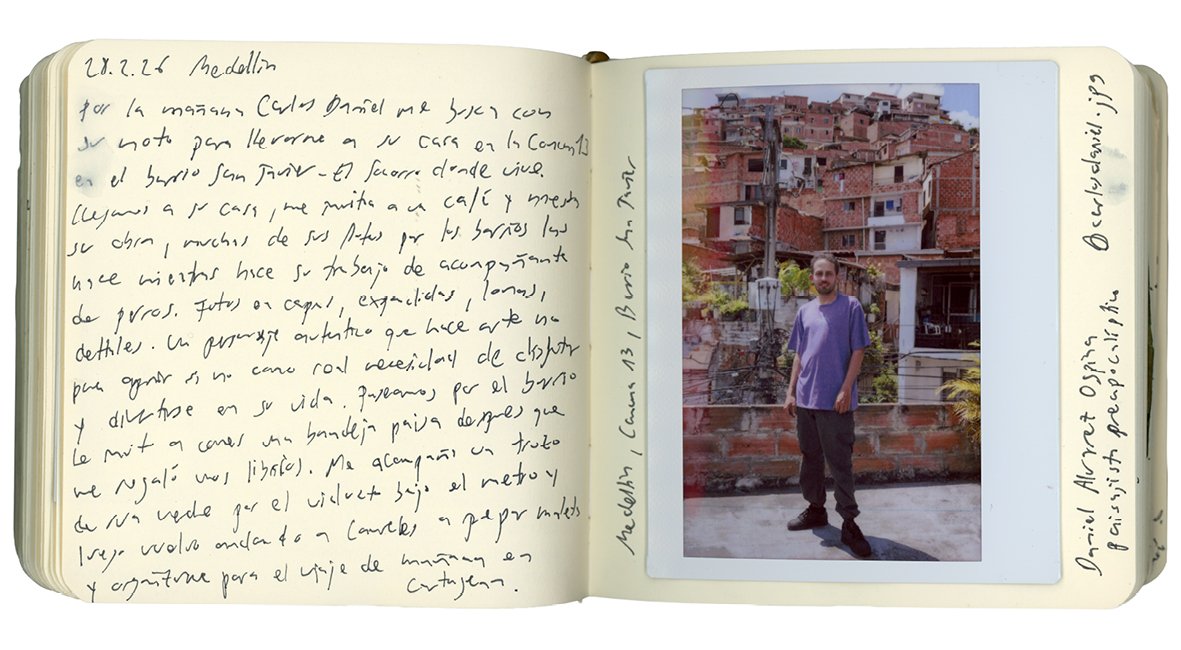 28.2.26 Medellín
Por la mañana Carlos Daniel me busca con
su moto para llevarme a su casa en la Comuna 13
en el barrio San Javier - El Socorro donde vive.
Llegamos a su casa, me invita a un café y muestra
su obra, muchas de sus fotos por los barrios las
hace mientras hace su trabajo de acompañante
de perros. Fotos en capas, expandidas, lomas,
detalles. Un personaje autentico que hace arte no
para si no como real necesidad de disfrutar
y divertirse en su vida. Paseamos por el barrio
le invito a comer una bandeja paisa después que
me regaló unos libritos. Me acompaña un trozo
de ruta verde por el viaducto bajo el metro y
luego vuelvo andando a Laureles a
y organizarme para el viaje de mañana en
Cartagena.
Medellín, Comuna 13, Barrio San Javier
Daniel Alvarez Ospina
paisajista preapocalíptico @carlsdaniel.jpg